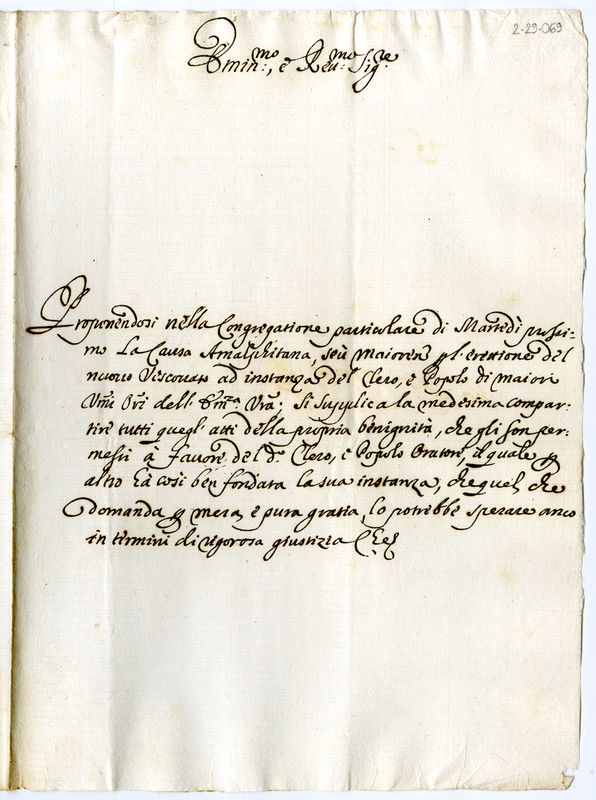 2-29-069
Emin.mo, e Reu.mo Sig.re
Proponendosi nella Congregatione particolare di Martedì prossi-
mo La Causa Amalphitana, seù Maioren pl. eretione del
nuouo Vescouato ad instanza del Clero, e Popolo di Maiori
Vmi Ori dell. Em.za Vra; Si supplica la medesima compar-
tire tutti quegl' atti della propria benignità, che gli son per-
messi à fauore del d.o Clero, e Popolo Oratore, il quale p
altro hà così ben fondata la sua instanza, che quel, che
domanda p mera, e pura gratia, lo potrebbe sperare anco
in termini di rigorosa giustizia